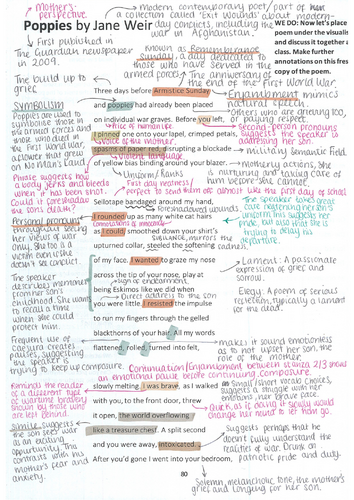 Mother's perspective.
Modern contemporary poet/part of a collection called 'Exit Wounds' about modern-day conflicts, including the war in Afghanistan.
Poppies by Jane Weir
WE DO: Now let's place
poem under the visualis
and discuss it together a
class. Make further
annotations on this fres
copy of the poem.
First published in
The Guardian newspaper
in 2009.
Known as Remembrance
Sunday, a day dedicated to
those who have served in the
armed forces. The anniversary of
the end of the First World War.
The build up to
grief
Three days before Armistice Sunday
Enjambment mimics
natural speech.
SYMBOLISM
Poppies are used to
symbolise those in
the armed forces and
those who died in
the First World War,
a flower that grew
on No Man's Land.
and poppies had already been placed
on individual war graves. Before you left,
Others who are grieving too,
or paying respect.
second-person pronoun
suggests the speaker is
addressing her son.
I pinned one onto your lapel, crimped petals,
spasms of paper red, disrupting a blockade
Violent language
Military semantic field.
of yellow bias binding around your blazer.
Phrase suggests how
a body jerks and bleeds
when it has been shot.
Could it foreshadow
the son's death?
Motherly actions, she
is nurturing and taking care of
him before she cannot.
Uniform/Ranks
Sellotape bandaged around my hand,
foreshadowed wounds
Personal pronouns
I rounded up as many white cat hairs
as I could, smoothed down your shirt's
upturned collar, steeled the softening
The speaker takes
great care
uniform. This suggests her
pride, but also that she is
trying to delay his
departure.
throughout seeing
her views of war
truly. She too is a
victim even if she
doesn't see conflict.
of my face. I wanted to graze my nose
across the tip of your nose, play at
being Eskimos like we did when
Direct address to the son
you were little. I resisted the impulse
to run my fingers through the gelled
blackthorns of your hair. All my words
flattened, rolled, turned into felt,
The speaker
describes memories
from her son's
childhood. She wants
to recall a time
when she could
protect him.
Lament: A passionate
expression of grief and
sorrow.
Elegy: A poem of serious
reflection, typically a lament
for the dead.
Frequent use of
caesura creates
pauses, suggesting
the speaker is
trying to keep up composure.
makes it sound emotionless
as to not upset her son, the
role of the mother.
Continuation/Enjambment between stanza 2/3 shows
an emotional pause before continuing, composure.
slowly melting. I was brave, as I walked
with you, to the front door, threw
it open, the world overflowing
like a treasure chest. A split second
and you were away, intoxicated.
After you'd gone I went into your bedroom,
Reminds the reader
of a different type
of wartime bravery
shown by those who
are left behind.
Small/short words choices,
suggests a struggle with her
emotions, her brave face.
Quick, as if doing it slowly would
change her mind to let him go.
Simile suggests
the son sees war
as an exciting
opportunity. This
contrasts with his
mother's fear and
anxiety.
Suggests perhaps that he
doesn't fully understand the
realities of war. Drunk on
patriotic pride and duty.
80
Solemn, melancholic tone, the mother's
grief and longing for her son.